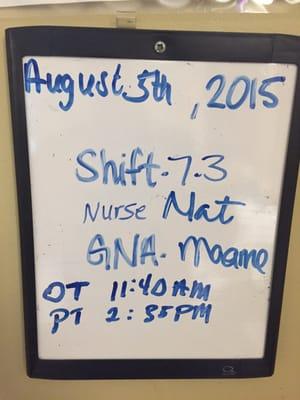 August 5th, 2015
Shift-7-3
Nurse Nat
GNA- Maame
OT 11:40 AM
PT 2:35PM